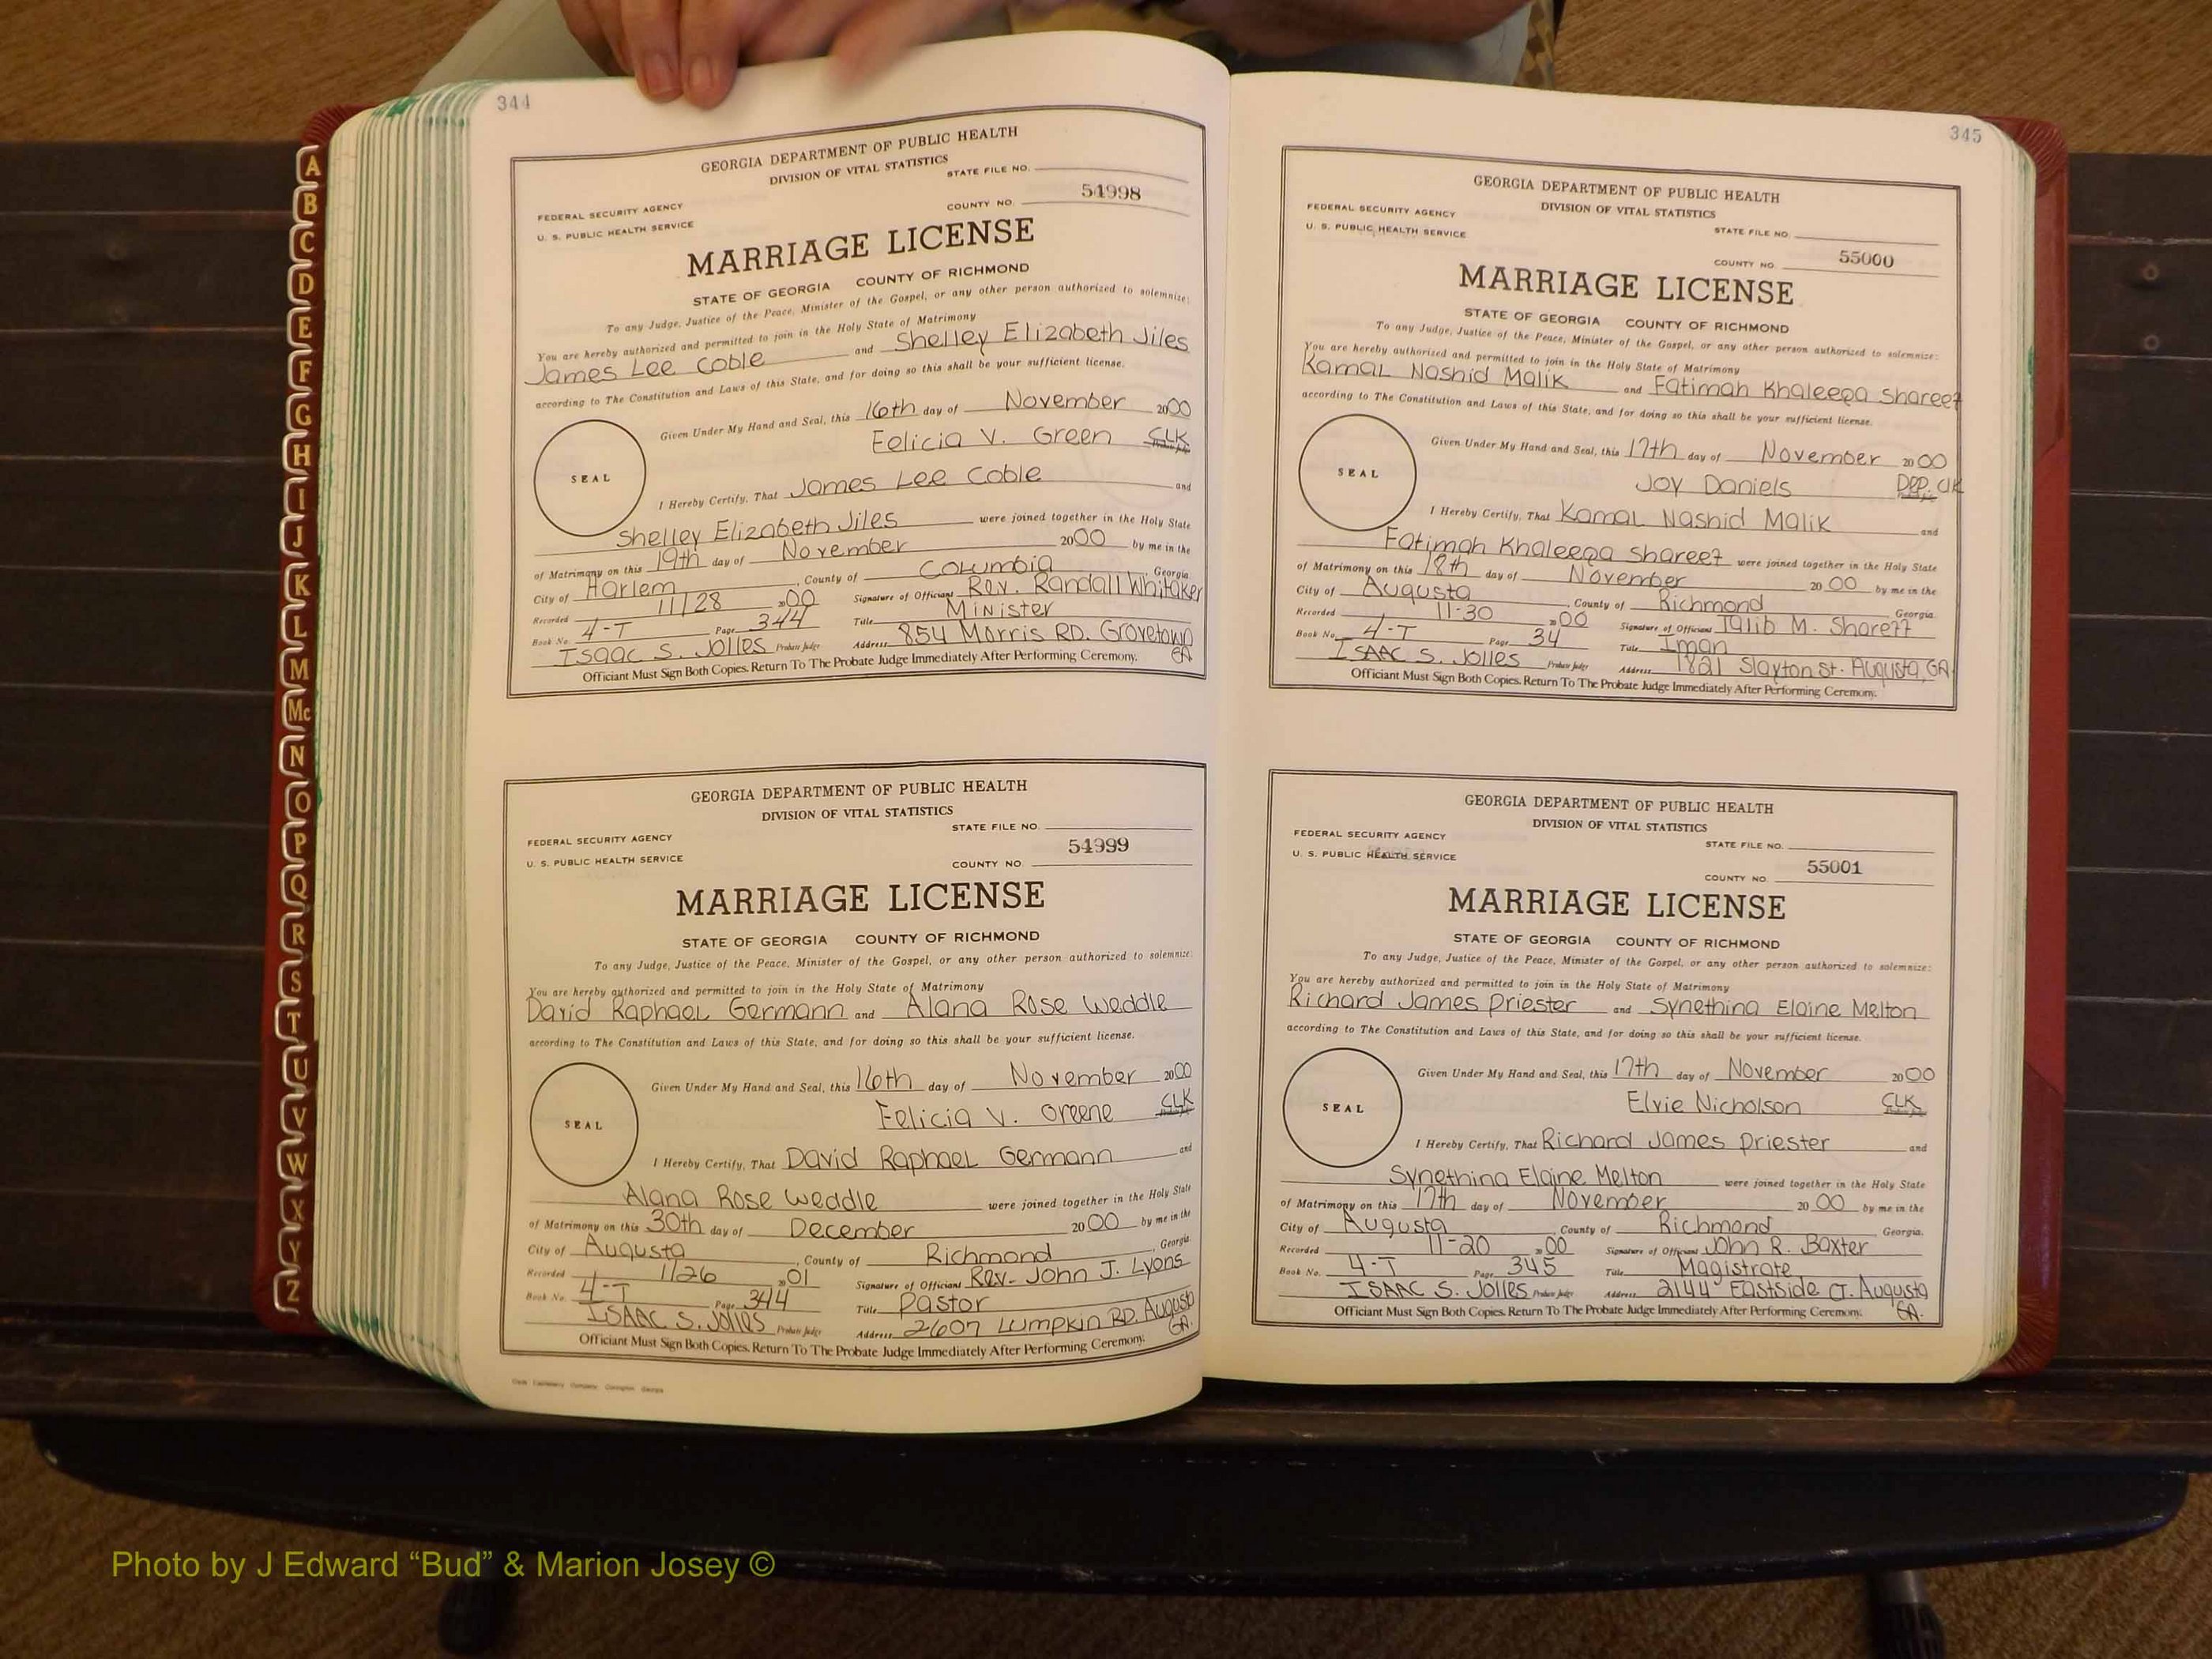 344
GEORGIA DEPARTMENT OF PUBLIC HEALTH
DIVISION OF VITAL STATISTICS
STATE FILE NO.
FEDERAL SECURITY AGENCY
COUNTY NO. 54998
U. S. PUBLIC HEALTH SERVICE
MARRIAGE LICENSE
STATE OF GEORGIA COUNTY OF RICHMOND
To any Judge, Justice of the Peace, Minister of the Gospel, or any other person authorized to solemnize:
You are hereby authorized and permitted to join in the Holy State of Matrimony
James Lee Coble and Shelley Elizabeth Jiles
according to The Constitution and Laws of this State, and for doing so this shall be your sufficient license.
Given Under My Hand and Seal, this 16th day of November 2000
Felicia V. Green CLK
SEAL
I Hereby Certify, That James Lee Coble and
Shelley Elizabeth Jiles were joined together in the Holy State
of Matrimony on this 19th day of November 2000 by me in the
City of Harlem, County of Columbia, Georgia
Recorded 11/28 2000 Signature of Officiant Rev. Randall Whitaker
Book No. 4-T Page 344 Title Minister
Isaac S. Jolles Probate Judge Address 854 Morris RD. Grovetown GA
Officiant Must Sign Both Copies. Return To The Probate Judge Immediately After Performing Ceremony.
GEORGIA DEPARTMENT OF PUBLIC HEALTH
DIVISION OF VITAL STATISTICS
STATE FILE NO.
FEDERAL SECURITY AGENCY
COUNTY NO. 54999
U. S. PUBLIC HEALTH SERVICE
MARRIAGE LICENSE
STATE OF GEORGIA COUNTY OF RICHMOND
To any Judge, Justice of the Peace, Minister of the Gospel, or any other person authorized to solemnize:
You are hereby authorized and permitted to join in the Holy State of Matrimony
David Raphael Germann and Alana Rose Weddle
according to The Constitution and Laws of this State, and for doing so this shall be your sufficient license.
Given Under My Hand and Seal, this 16th day of November 2000
Felicia V. Greene CLK
SEAL
I Hereby Certify, That David Raphael Germann and
Alana Rose Weddle were joined together in the Holy State
of Matrimony on this 30th day of December 2000 by me in the
City of Augusta, County of Richmond, Georgia
Recorded 1/26 2001 Signature of Officiant Rev- John J. Lyons
Book No. 4-T Page 344 Title Pastor
ISAAC S. Jolles Probate Judge Address 2607 Lumpkin RD. Augusta GA.
Officiant Must Sign Both Copies. Return To The Probate Judge Immediately After Performing Ceremony.
345
GEORGIA DEPARTMENT OF PUBLIC HEALTH
DIVISION OF VITAL STATISTICS
FEDERAL SECURITY AGENCY
STATE FILE NO.
U. S. PUBLIC HEALTH SERVICE
COUNTY NO. 55000
MARRIAGE LICENSE
STATE OF GEORGIA COUNTY OF RICHMOND
To any Judge, Justice of the Peace, Minister of the Gospel, or any other person authorized to solemnize:
You are hereby authorized and permitted to join in the Holy State of Matrimony
Kamal Nashid Malik and Fatimah Khaleeqa Shareef
according to The Constitution and Laws of this State, and for doing so this shall be your sufficient license.
Given Under My Hand and Seal, this 17th day of November 2000
Joy Daniels Dep. Clk
SEAL
I Hereby Certify, That Kamal Nashid Malik and
Fatimah Khaleeqa Shareef were joined together in the Holy State
of Matrimony on this 18th day of November 2000 by me in the
City of Augusta, County of Richmond Georgia
Recorded 11-30 2000 Signature of Officiant Talib M. Shareff
Book No. 4-T Page 34 Title Iman
ISAAC S. Jolles Probate Judge Address 1821 Slayton St. Augusta, GA.
Officiant Must Sign Both Copies. Return To The Probate Judge Immediately After Performing Ceremony.
GEORGIA DEPARTMENT OF PUBLIC HEALTH
DIVISION OF VITAL STATISTICS
FEDERAL SECURITY AGENCY
STATE FILE NO.
U. S. PUBLIC HEALTH SERVICE
COUNTY NO. 55001
MARRIAGE LICENSE
STATE OF GEORGIA COUNTY OF RICHMOND
To any Judge, Justice of the Peace, Minister of the Gospel, or any other person authorized to solemnize:
You are hereby authorized and permitted to join in the Holy State of Matrimony
Richard James Priester and Synethina Elaine Melton
according to The Constitution and Laws of this State, and for doing so this shall be your sufficient license.
Given Under My Hand and Seal, this 17th day of November 2000
Elvie Nicholson CLK
SEAL
I Hereby Certify, That Richard James Priester and
Synethina Elaine Melton were joined together in the Holy State
of Matrimony on this 17th day of November 2000 by me in the
City of Augusta, County of Richmond Georgia.
Recorded 11-20 2000 Signature of Officiant John R. Baxter
Book No. 4-T Page 345 Title Magistrate
ISAAC S. Jolles Probate Judge Address 2144 Eastside CT. Augusta GA.
Officiant Must Sign Both Copies. Return To The Probate Judge Immediately After Performing Ceremony.
A
B
C
D
E
F
G
H
I
J
K
L
M
Mc
N
O
P
Q
R
S
T
U
V
W
X
Y
Z
Photo by J Edward “Bud” & Marion Josey ©